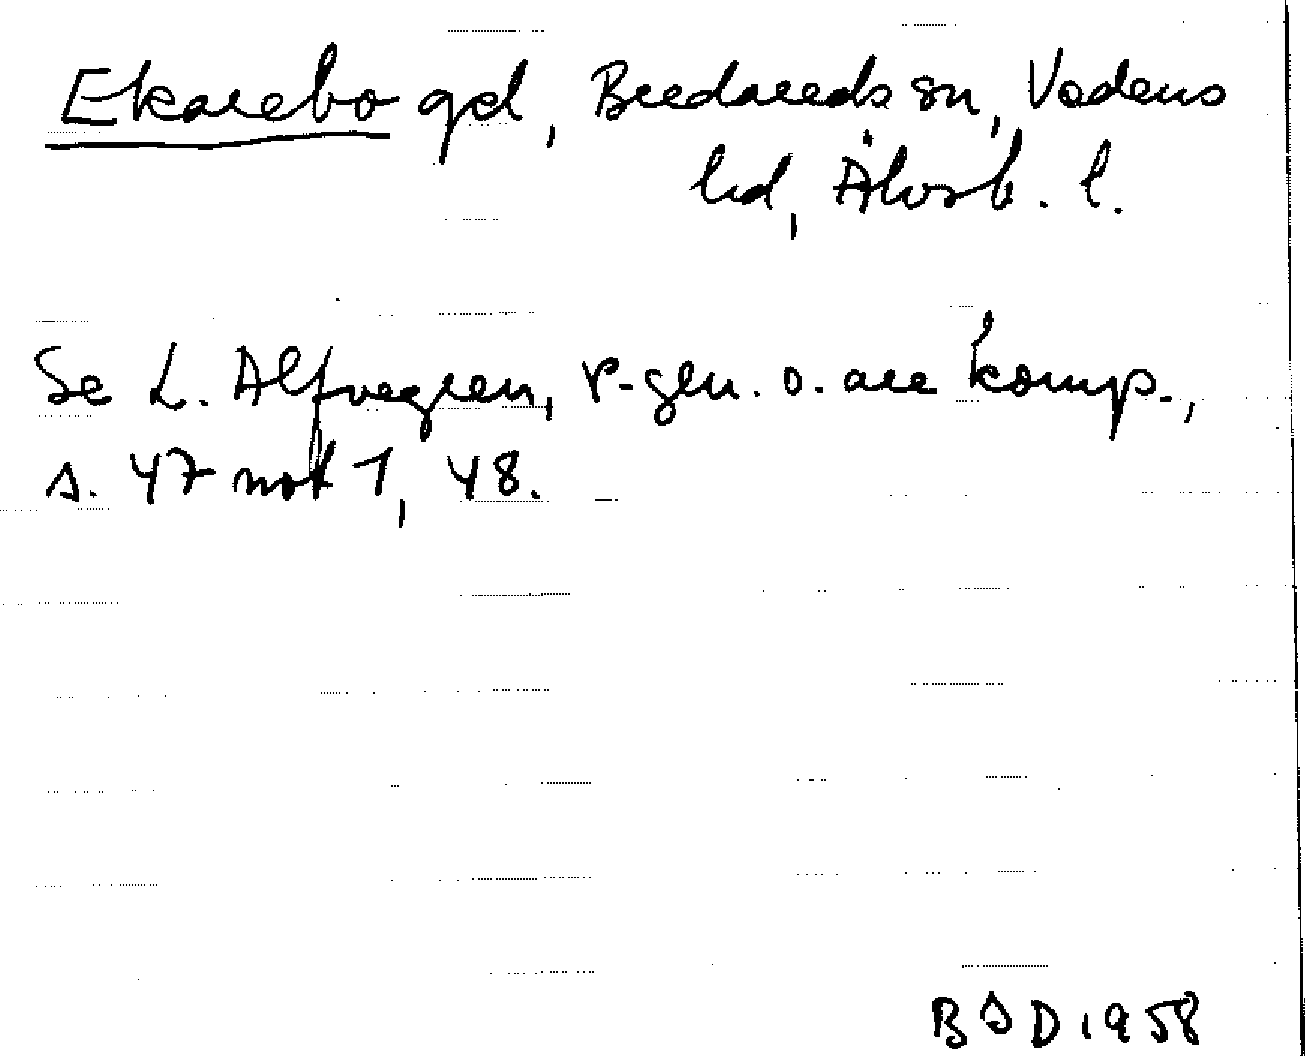 Ekarebo gd, Bredareds sn, Vedens
hd, Älvsb. l.
Se L. Alfvegren, r-gen. o. are komp.,
s. 47 not 1, 48.
BSD 1958